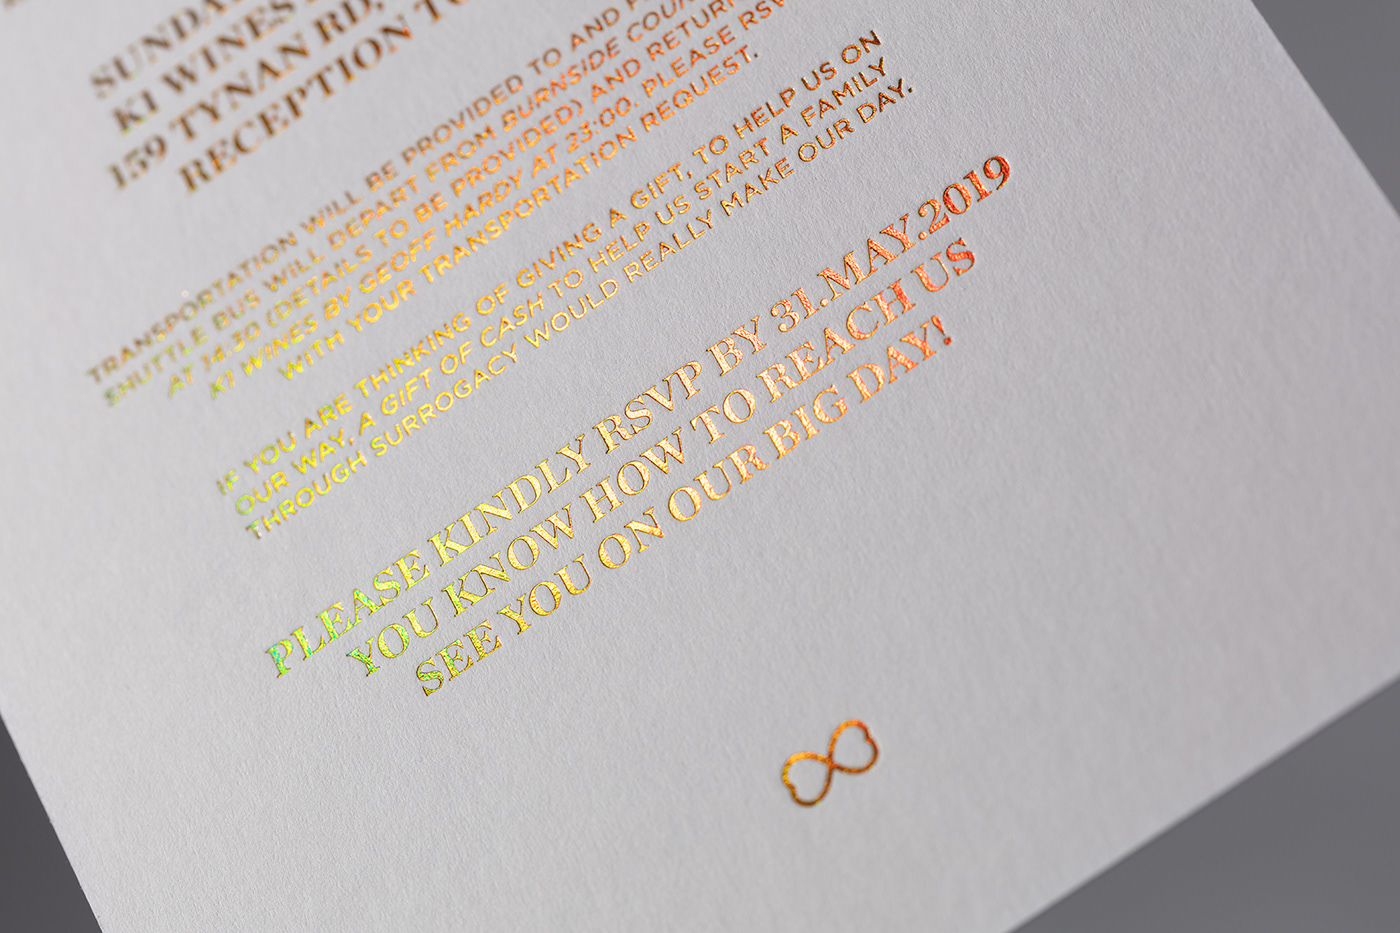 SUNDA
K1 WINES
159 TYNAN RD,
RECEPTION TO
TRANSPORTATION WILL BE PROVIDED TO AND
SHUTTLE BUS WILL DEPART FROM BURNSIDE COUN
AT 14.30 (DETAILS TO BE PROVIDED) AND RETURN
K1 WINES BY GEOFF HARDY AT 23:00. PLEASE RSV
WITH YOUR TRANSPORTATION REQUEST.
IF YOU ARE THINKING OF GIVING A GIFT, TO HELP US ON
OUR WAY, A GIFT OF CASH TO HELP US START A FAMILY
THROUGH SURROGACY WOULD REALLY MAKE OUR DAY.
PLEASE KINDLY RSVP BY 31.MAY.2019
YOU KNOW HOW TO REACH US
SEE YOU ON OUR BIG DAY!